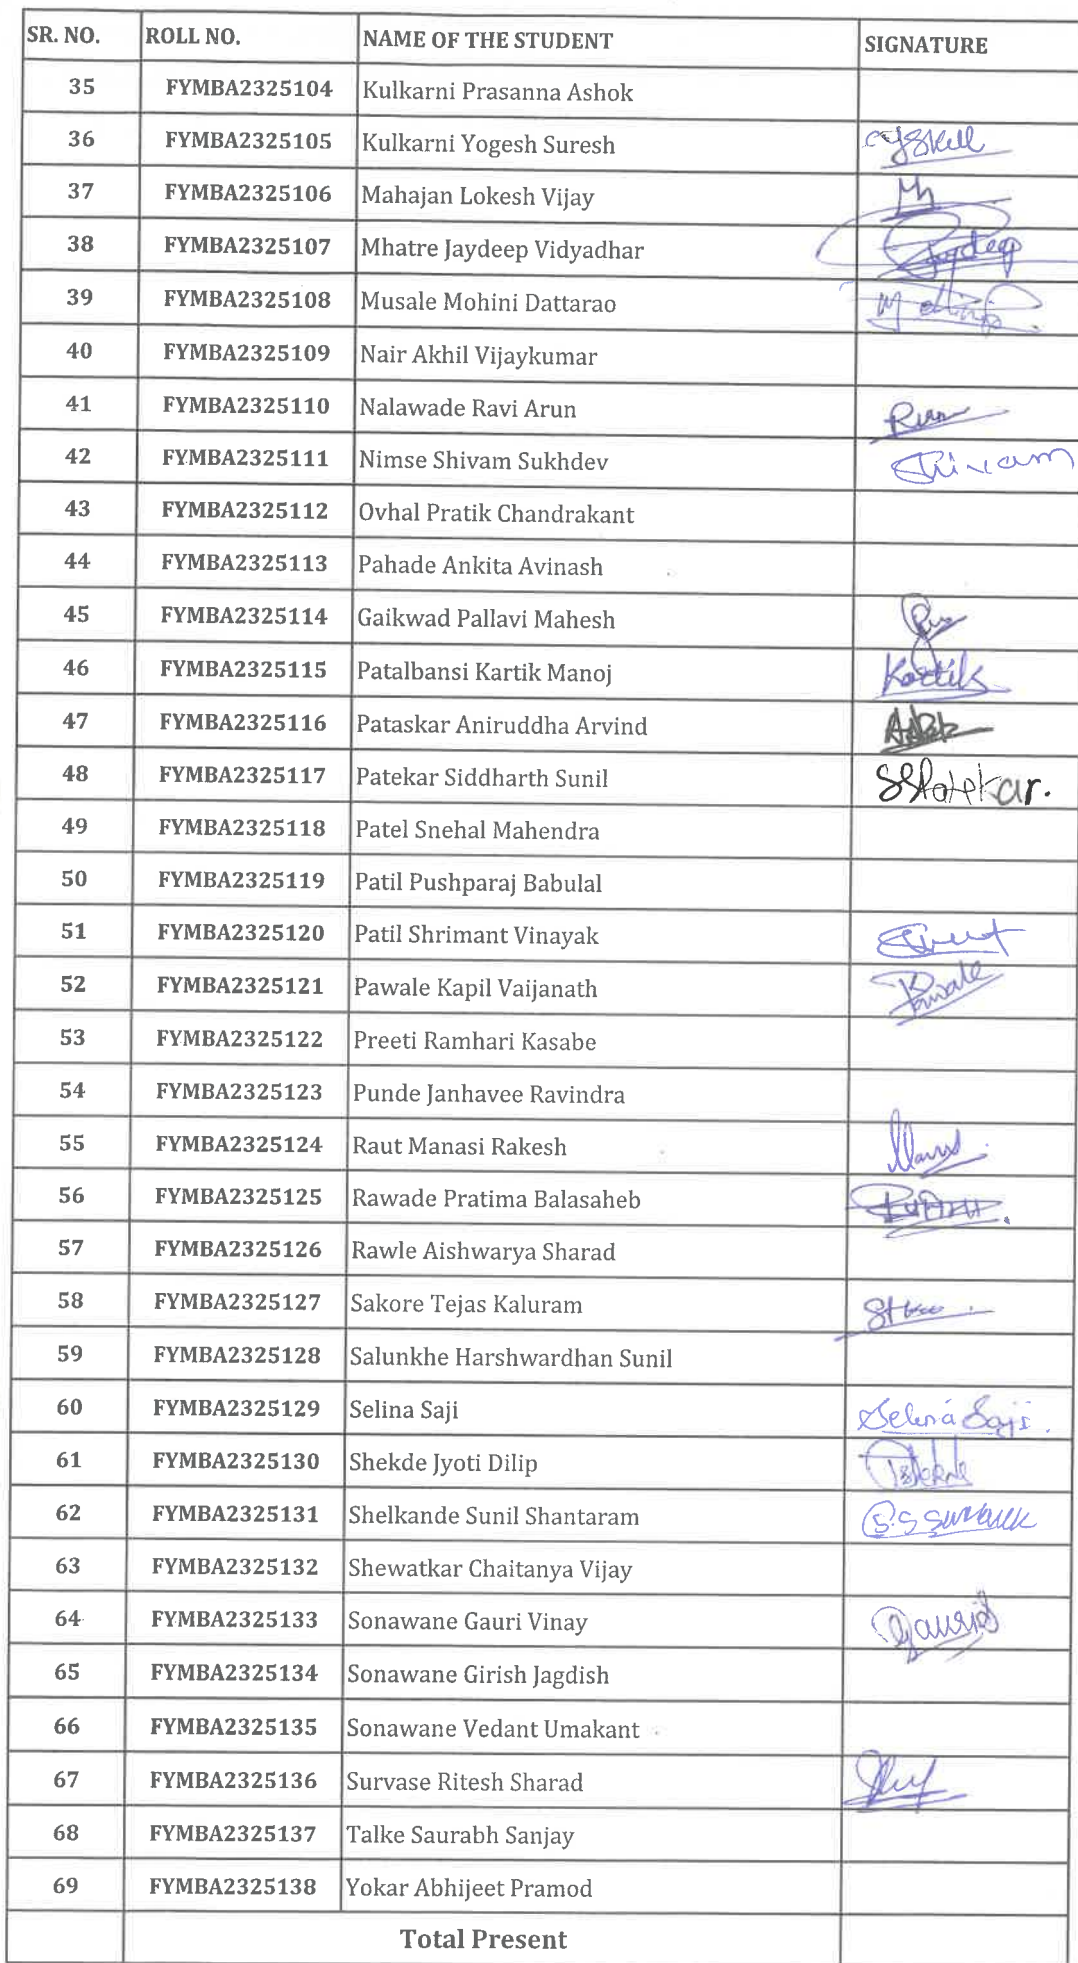 SR. NO. ROLL NO. NAME OF THE STUDENT SIGNATURE
35 FYMBA2325104 Kulkarni Prasanna Ashok
36 FYMBA2325105 Kulkarni Yogesh Suresh
37 FYMBA2325106 Mahajan Lokesh Vijay
38 FYMBA2325107 Mhatre Jaydeep Vidyadhar
39 FYMBA2325108 Musale Mohini Dattarao
40 FYMBA2325109 Nair Akhil Vijaykumar
41 FYMBA2325110 Nalawade Ravi Arun
42 FYMBA2325111 Nimse Shivam Sukhdev Shivam
43 FYMBA2325112 Ovhal Pratik Chandrakant
44 FYMBA2325113 Pahade Ankita Avinash
45 FYMBA2325114 Gaikwad Pallavi Mahesh
46 FYMBA2325115 Patalbansi Kartik Manoj Kartik
47 FYMBA2325116 Pataskar Aniruddha Arvind
48 FYMBA2325117 Patekar Siddharth Sunil SSPatekar.
49 FYMBA2325118 Patel Snehal Mahendra
50 FYMBA2325119 Patil Pushparaj Babulal
51 FYMBA2325120 Patil Shrimant Vinayak
52 FYMBA2325121 Pawale Kapil Vaijanath Pawale
53 FYMBA2325122 Preeti Ramhari Kasabe
54 FYMBA2325123 Punde Janhavee Ravindra
55 FYMBA2325124 Raut Manasi Rakesh
56 FYMBA2325125 Rawade Pratima Balasaheb
57 FYMBA2325126 Rawle Aishwarya Sharad
58 FYMBA2325127 Sakore Tejas Kaluram
59 FYMBA2325128 Salunkhe Harshwardhan Sunil
60 FYMBA2325129 Selina Saji Selina Saji.
61 FYMBA2325130 Shekde Jyoti Dilip
62 FYMBA2325131 Shelkande Sunil Shantaram
63 FYMBA2325132 Shewatkar Chaitanya Vijay
64 FYMBA2325133 Sonawane Gauri Vinay
65 FYMBA2325134 Sonawane Girish Jagdish
66 FYMBA2325135 Sonawane Vedant Umakant
67 FYMBA2325136 Survase Ritesh Sharad
68 FYMBA2325137 Talke Saurabh Sanjay
69 FYMBA2325138 Yokar Abhijeet Pramod
Total Present